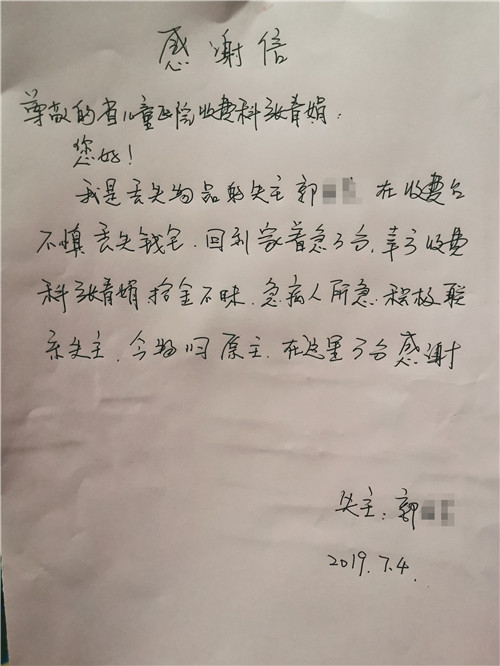 感谢信
尊敬的省儿童医院收费科张青娟:
您好!
我是丢失物品的失主郭 在收费台
不慎丢失钱包.回到家着急万分,幸亏收费
科张青娟拾金不昧.急病人所急.积极联
系失主,今物归原主.在这里万分感谢
失主:郭
2019.7.4.